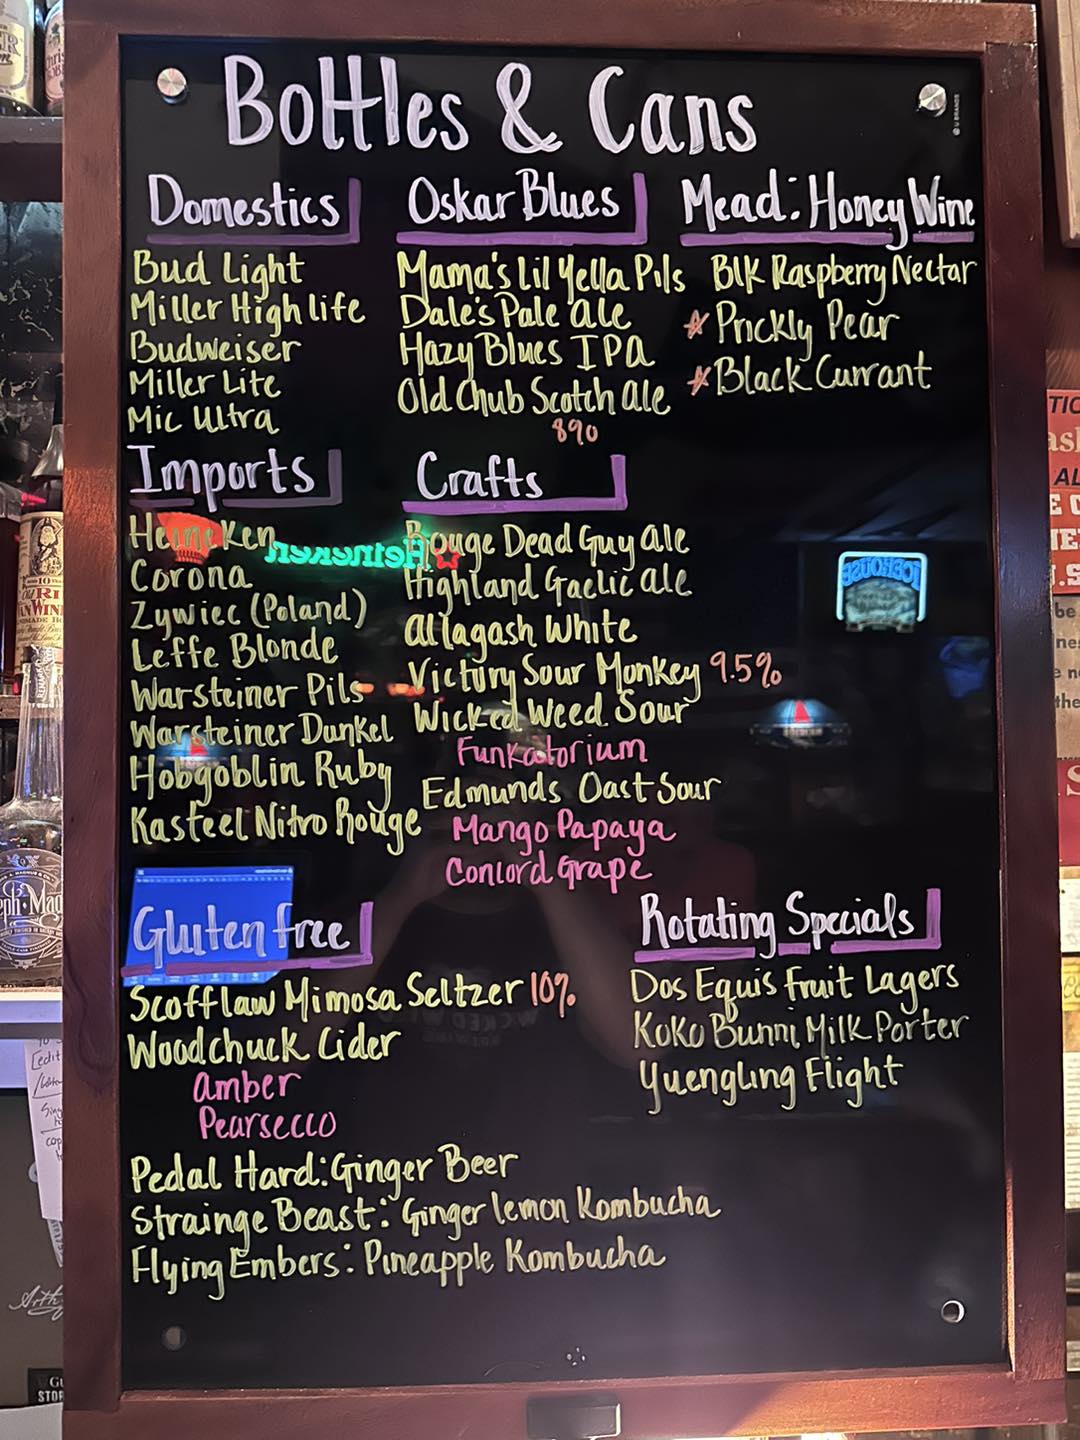 Bottles & Cans
Domestics
Bud Light
Miller High life
Budweiser
Miller Lite
Mic Ultra
Oskar Blues
Mama's lil Yella Pils
Dale's Pale Ale
Hazy Blues IPA
Old Chub Scotch Ale
8%
Mead: Honey Wine
Blk Raspberry Nectar
Prickly Pear
Black Currant
Imports
Heineken
Corona
Zywiec (Poland)
Leffe Blonde
Warsteiner Pils
Warsteiner Dunkel
Hobgoblin Ruby
Kasteel Nitro Rouge
Crafts
Rouge Dead Guy Ale
Highland Gaelic Ale
Allagash White
Victory Sour Monkey 9.5%
Wicked Weed Sour
Funkatorium
Edmunds Oast Sour
Mango Papaya
Concord Grape
Gluten free
Scofflaw Mimosa Seltzer 10%
Woodchuck Cider
Amber
Pearsecco
Pedal Hard: Ginger Beer
Strainge Beast: Ginger lemon Kombucha
Flying Embers: Pineapple Kombucha
Rotating Specials
Dos Equis Fruit Lagers
Koko Bunni Milk Porter
Yuengling Flight
Heineken
ICEHOUSE
U BRANDS